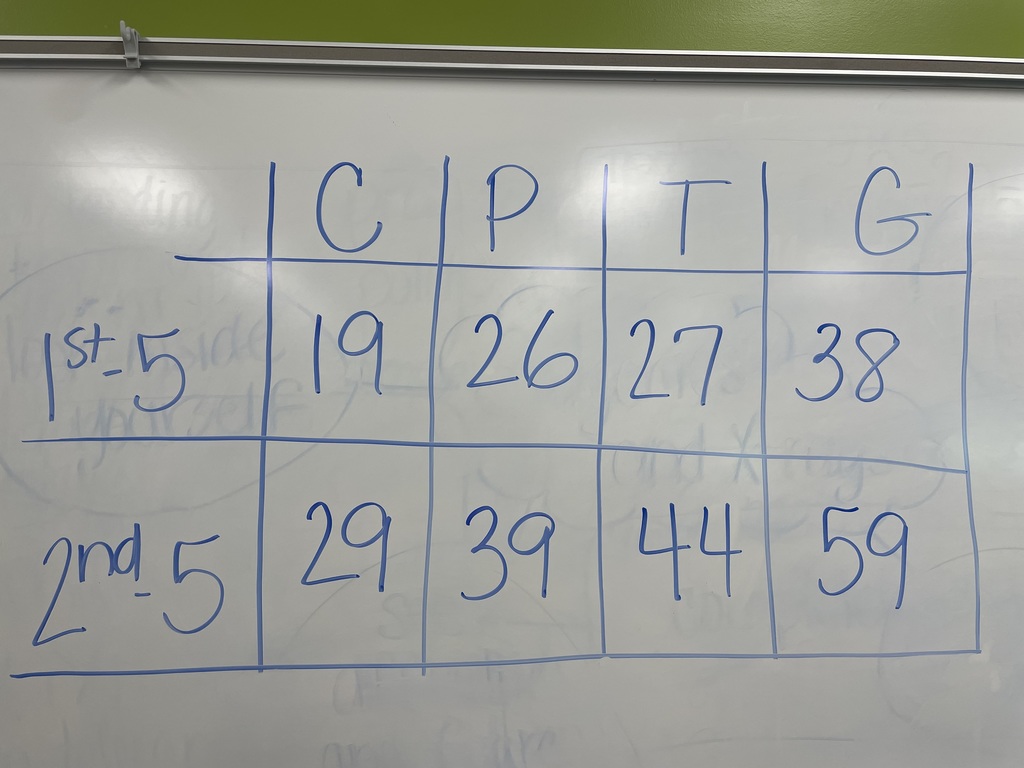 C P T G
1st-5 19 26 27 38
2nd-5 29 39 44 59